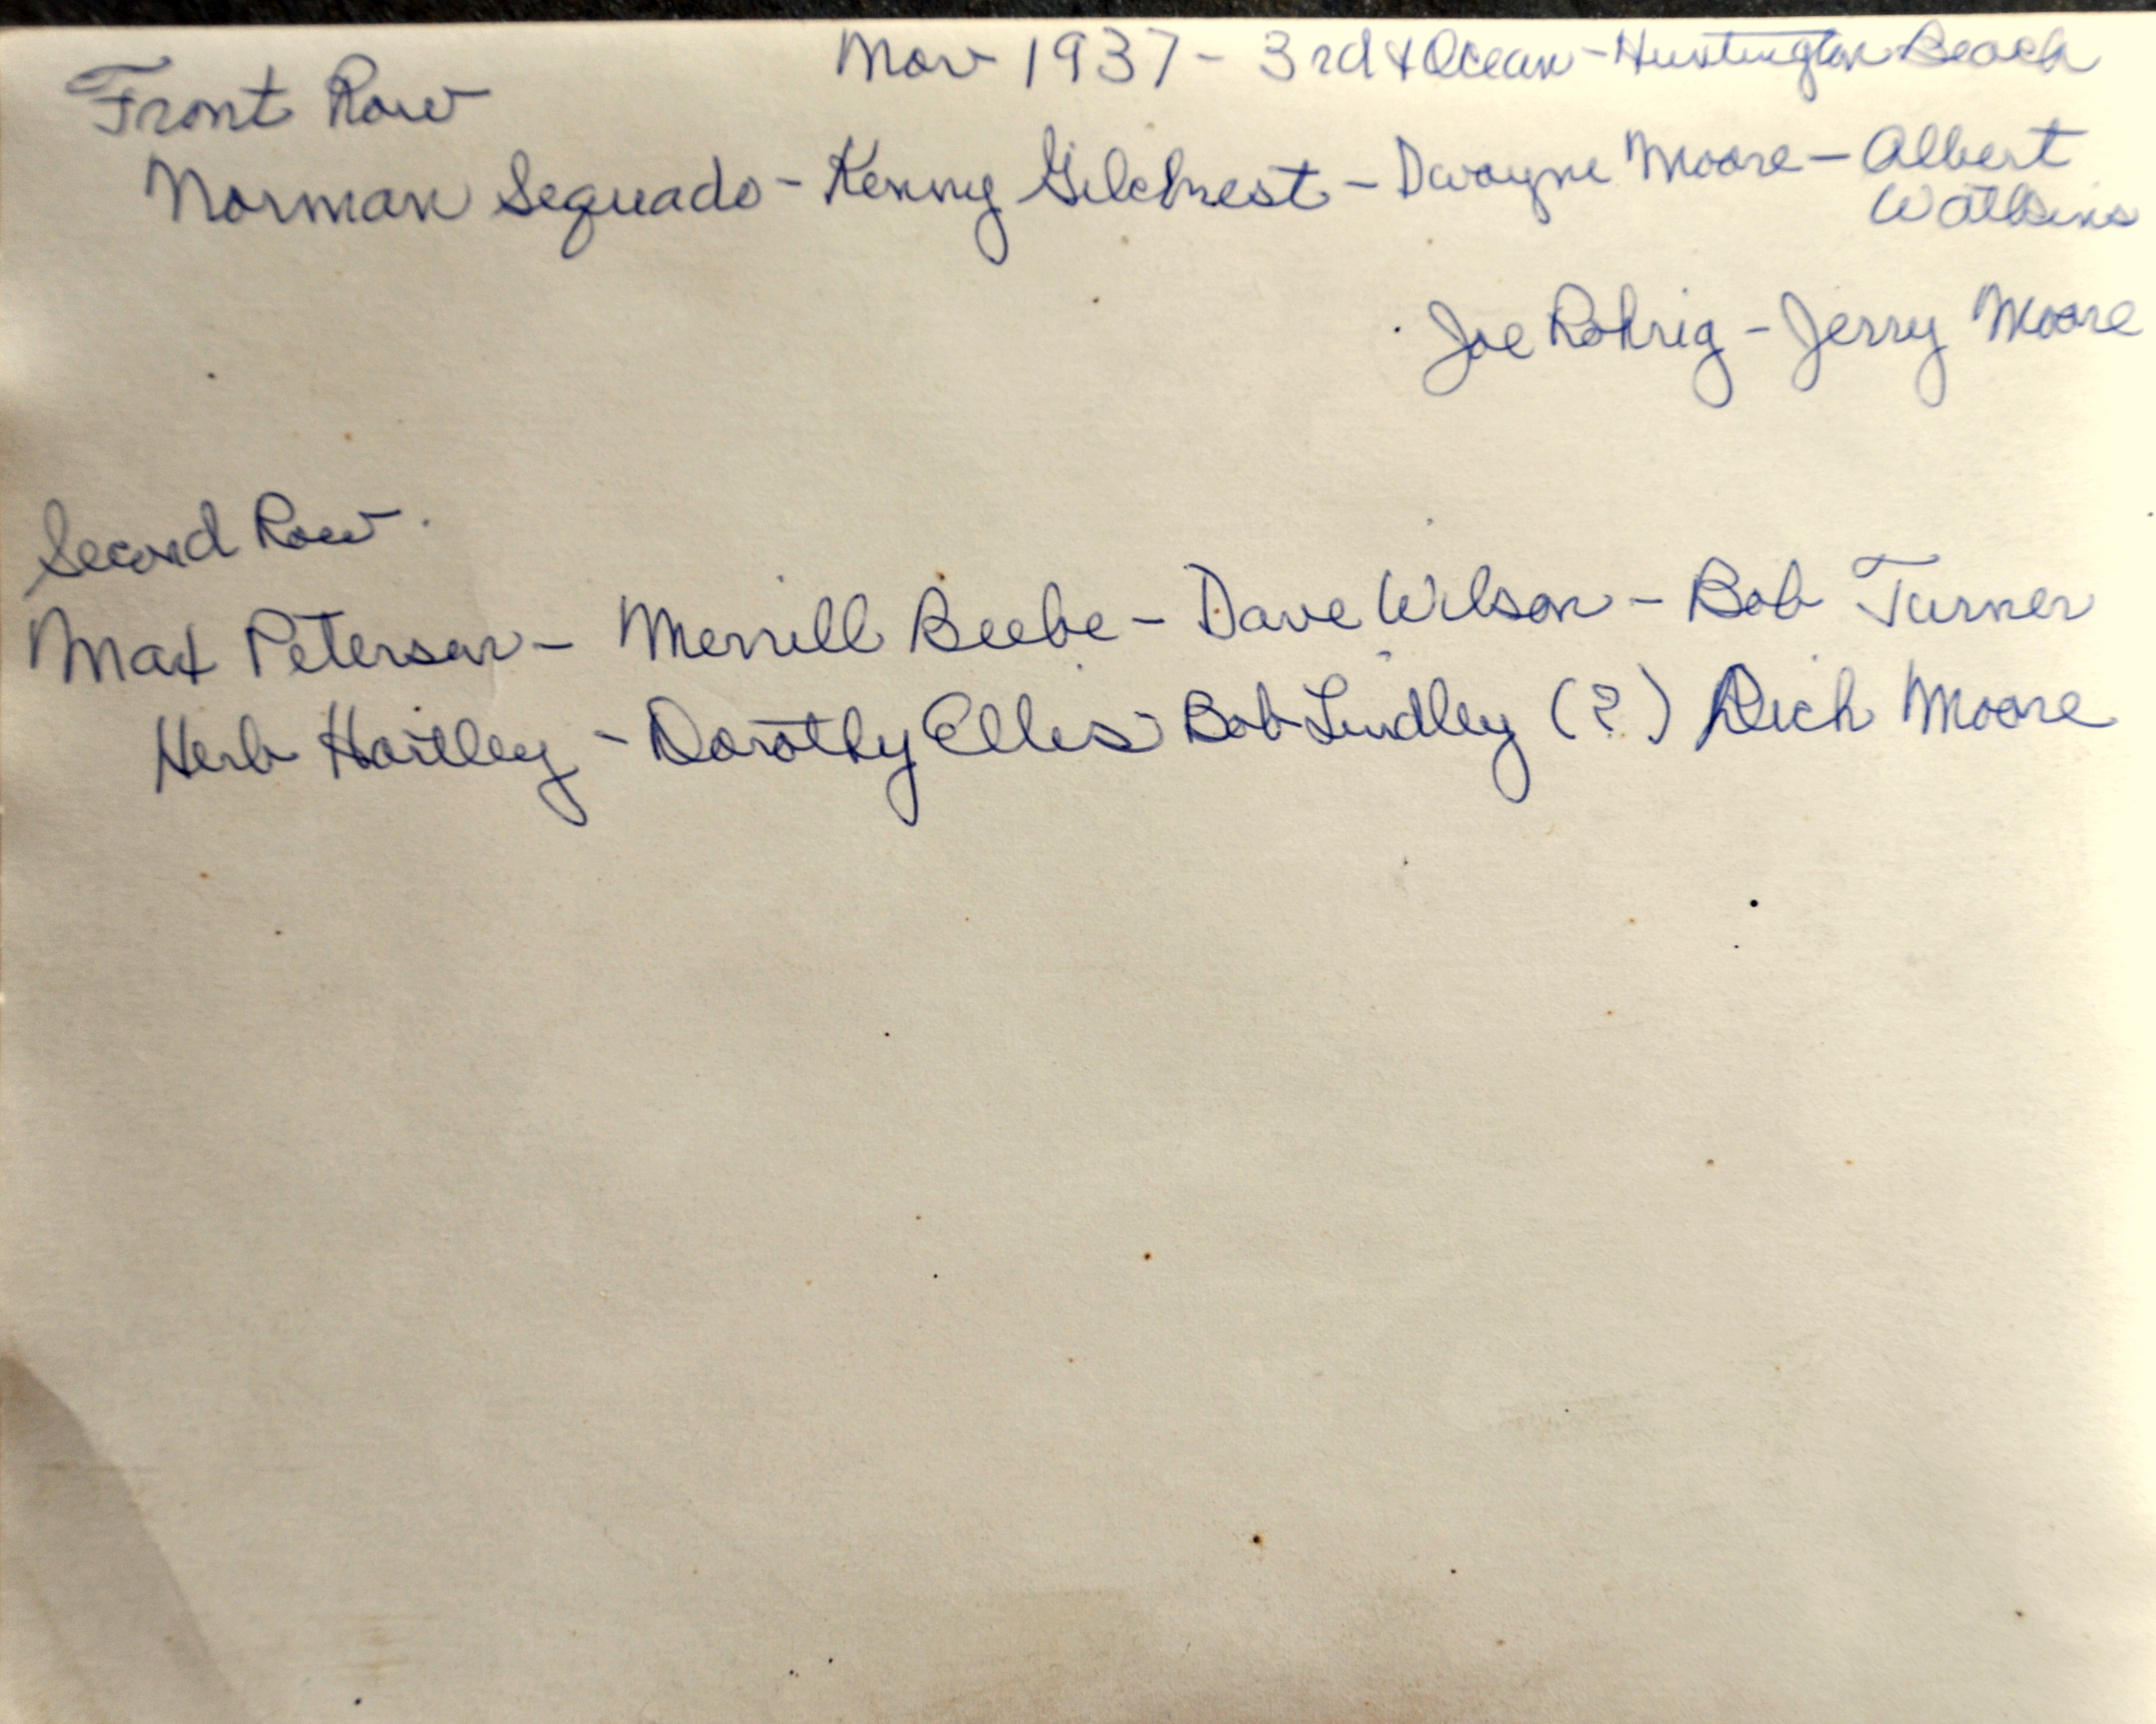 Nov 1937 - 3rd & Ocean - Huntington Beach
Front Row
Norman Sequado - Kenny Gilchrest - Dwayne Moore - Albert
Watkins
Joe Rohrig - Jerry Moore
Second Row
Max Peterson - Merrill Beebe - Dave Wilson - Bob Turner
Herb Hartley - Dorothy Ellis Bob Lindley (?) Rich Moore